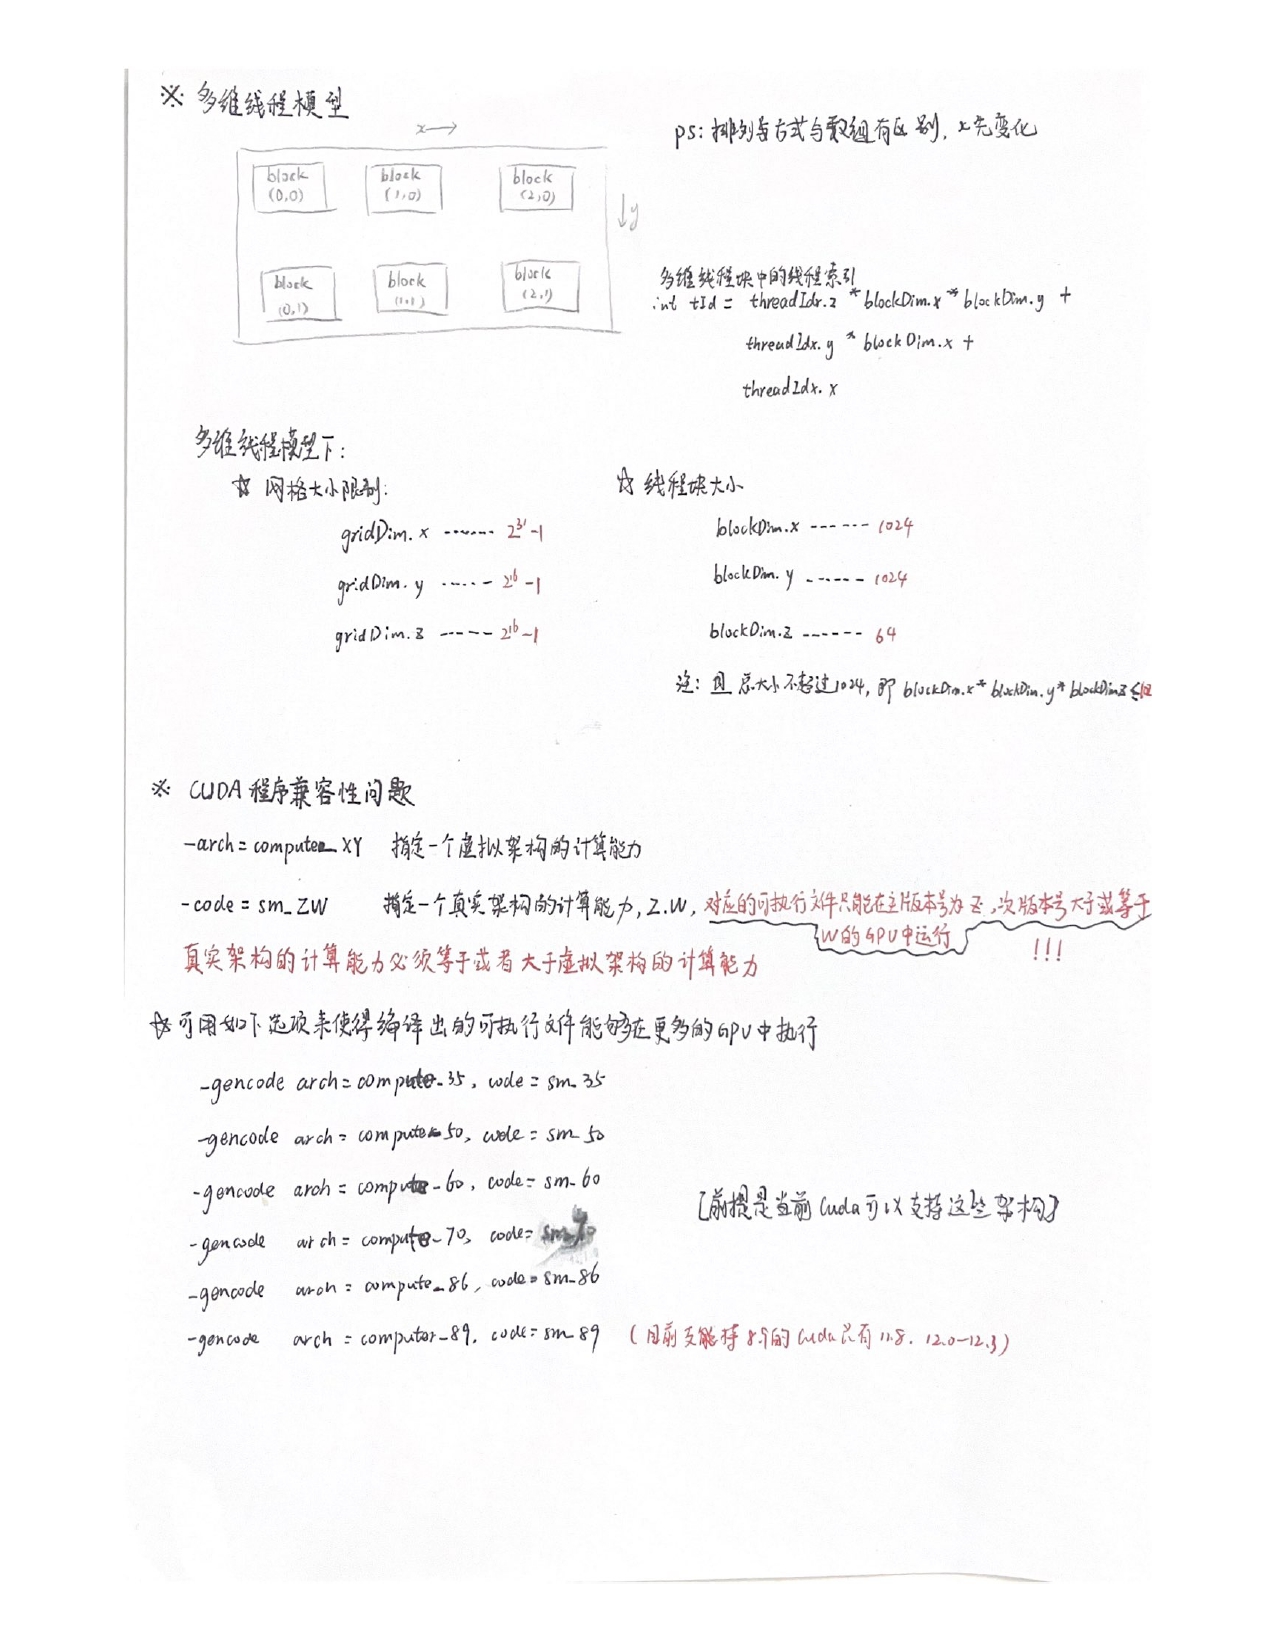 ※ 多维线程模型
x→
ps: 排列方式与数组有区别, x先变化
block (0,0)
block (1,0)
block (2,0)
↓y
block (0,1)
block (1,1)
block (2,1)
多维线程块中的线程索引
int tId = threadIdx.z * blockDim.x * blockDim.y +
threadIdx.y * blockDim.x +
threadIdx.x
多维线程模型下:
☆ 网格大小限制:
gridDim.x ------- 2³¹-1
gridDim.y ----- 2¹⁶-1
gridDim.z ------ 2¹⁶-1
☆ 线程块大小
blockDim.x ------ 1024
blockDim.y ------ 1024
blockDim.z ------ 64
注: 且 总大小不超过1024, 即 blockDim.x * blockDim.y * blockDim.z ≤
※ CUDA 程序兼容性问题
-arch = compute_XY 指定一个虚拟架构的计算能力
-code = sm_ZW 指定一个真实架构的计算能力, Z.W, 对应的可执行文件只能在主版本号为 Z, 次版本号大于或等于
W的GPU中运行 !!!
真实架构的计算能力必须等于或者大于虚拟架构的计算能力
☆ 可用如下选项来使得编译出的可执行文件能够在更多的GPU中执行
-gencode arch = compute_35, code = sm_35
-gencode arch = compute_50, code = sm_50
-gencode arch = compute_60, code = sm_60
[前提是当前Cuda可以支持这些架构]
-gencode arch = compute_70, code = sm_70
-gencode arch = compute_86, code = sm_86
-gencode arch = computer_89, code = sm_89 (目前支能持8.9的Cuda只有11.8, 12.0-12.3)